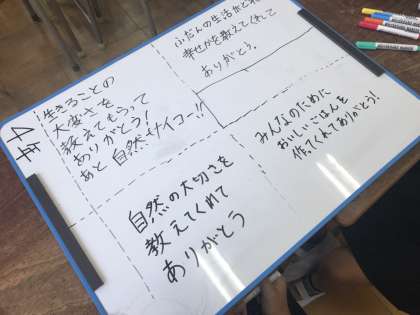 生きることの
大変さを
教えてもらって
ありがとう!
あと 自然サイコー!!
ふだんの生活がどれ
幸せかを教えて
ありがとう。
4年
みんなのために
おいしいごはんを
作ってくれてありがとう!
自然の大切さを
教えてくれて
ありがとう